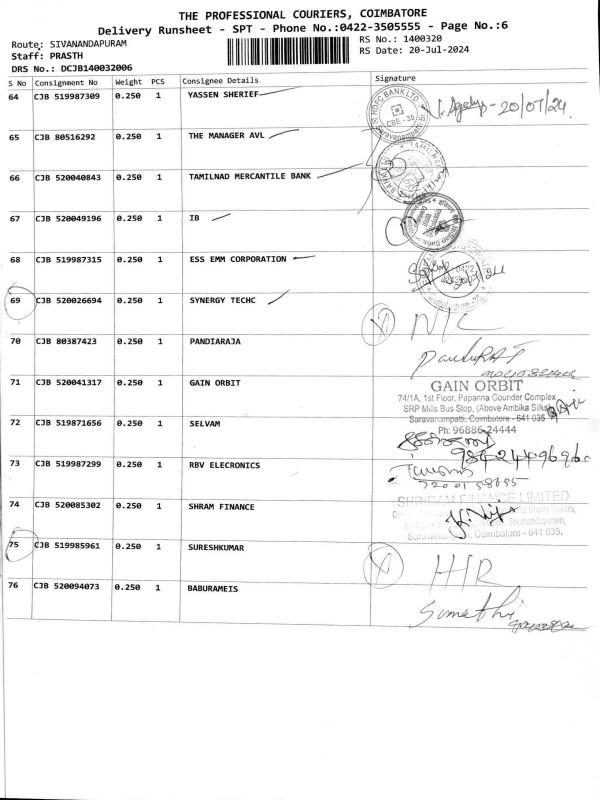 THE PROFESSIONAL COURIERS, COIMBATORE
Delivery Runsheet - SPT - Phone No.:0422-3505555 - Page No.:6
Route: SIVANANDAPURAM
RS No.: 1400320
Staff: PRASTH
RS Date: 20-Jul-2024
DRS No.: DCJB140032006
S No Consignment No Weight PCS Consignee Details Signature
64 CJB 519987309 0.250 1 YASSEN SHERIEF
HDFC BANK LTD
CBE - 35
20/07/24
65 CJB 80516292 0.250 1 THE MANAGER AVL
66 CJB 520040843 0.250 1 TAMILNAD MERCANTILE BANK
67 CJB 520049196 0.250 1 IB
68 CJB 519987315 0.250 1 ESS EMM CORPORATION
69 CJB 520026694 0.250 1 SYNERGY TECHC
N/C
70 CJB 80387423 0.250 1 PANDIARAJA
71 CJB 520041317 0.250 1 GAIN ORBIT
GAIN ORBIT
74/1A, 1st Floor, Papanna Gounder Complex
SRP Mills Bus Stop, (Above Ambika Silks)
Saravanampatti, Coimbatore - 641 035
Ph: 96886 24444
72 CJB 519871656 0.250 1 SELVAM
73 CJB 519987299 0.250 1 RBV ELECRONICS
74 CJB 520085302 0.250 1 SHRAM FINANCE
SHRIRAM FINANCE LIMITED
Sivanandapuram,
Coimbatore - 641 035.
75 CJB 519985961 0.250 1 SURESHKUMAR
76 CJB 520094073 0.250 1 BABURAMEIS
Sumathi